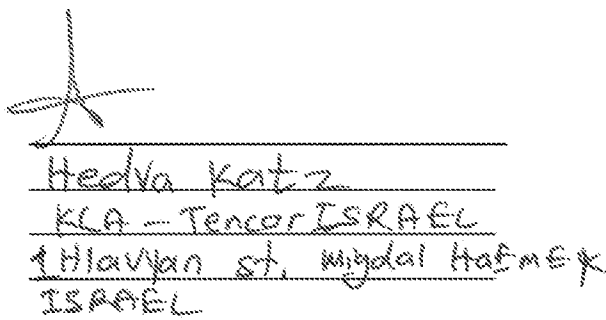 Hedva Katz
KLA - Tencor ISRAEL
1 Hlavyan st. Migdal HaEmek
ISRAEL